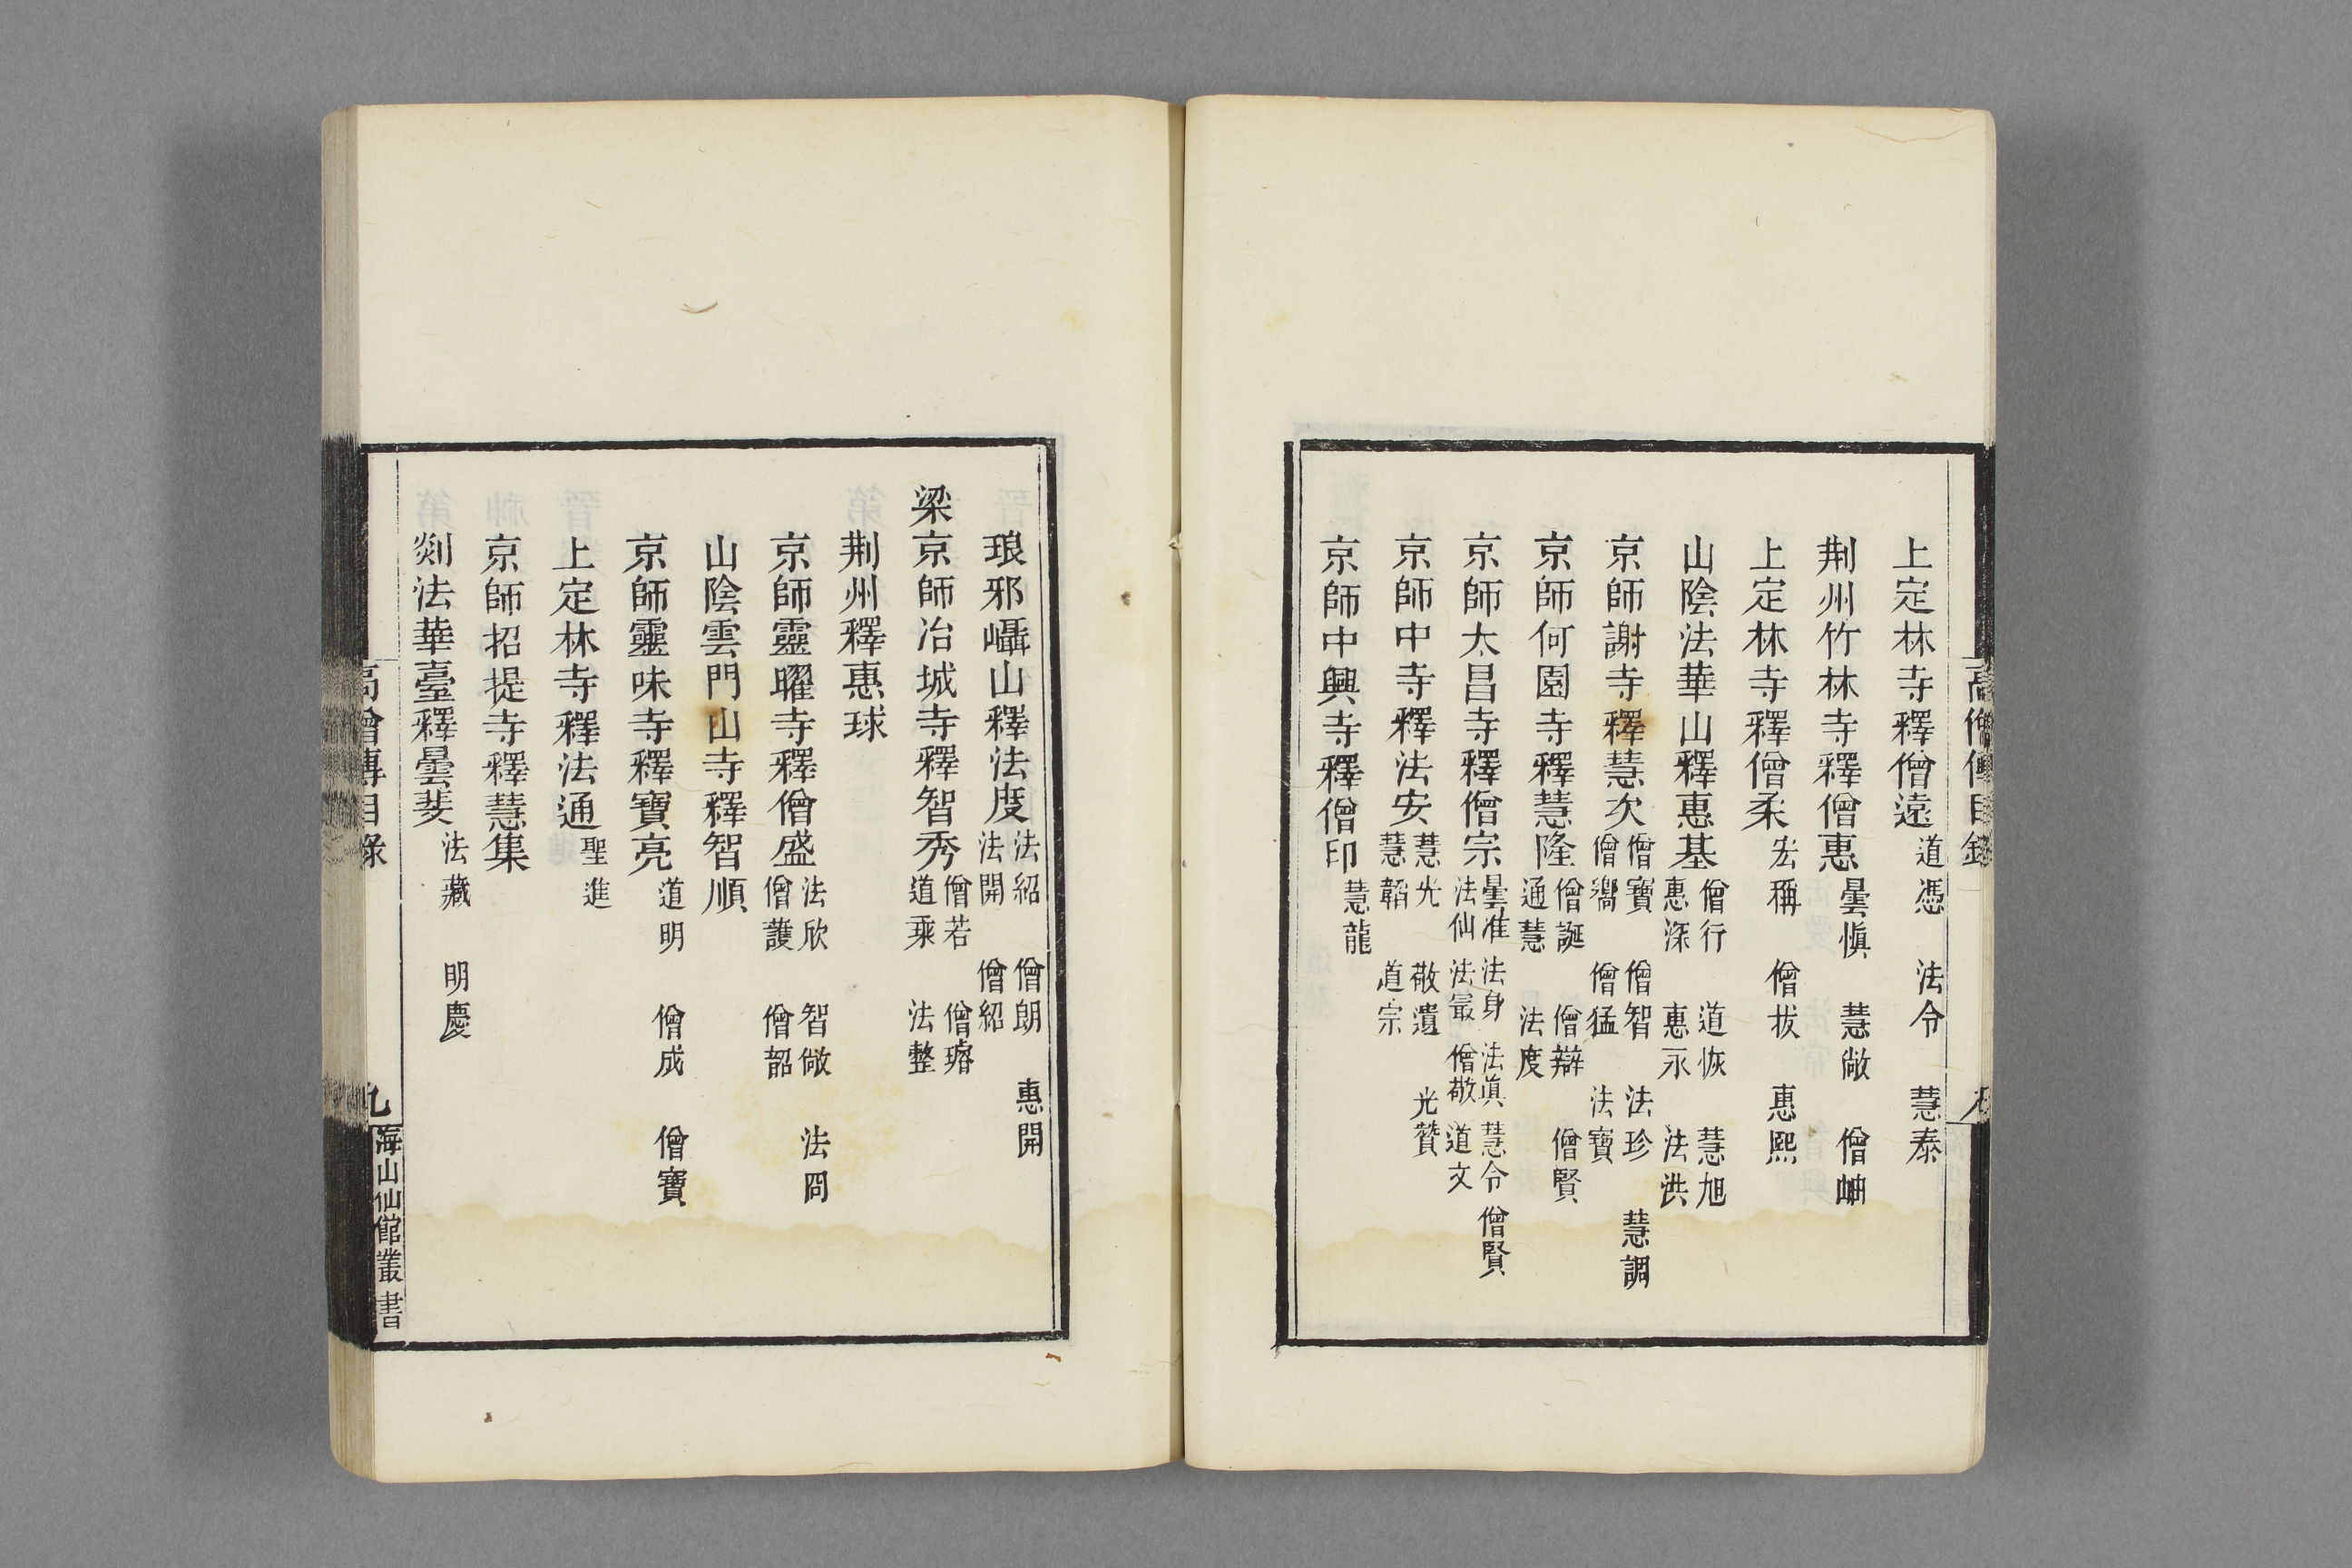 上定林寺釋僧遠 道憑 法令 慧泰
荆州竹林寺釋僧惠 曇慎 慧敞 僧岫
上定林寺釋僧柔 宏稱 僧拔 惠熙
山陰法華山釋惠基 僧行 道恢 慧旭 惠深 惠永 法洪
京師謝寺釋慧次 僧寶 僧智 法珍 慧調 僧嚮 僧猛 法寶
京師何園寺釋慧隆 僧誕 僧辯 僧賢 通慧 法度
京師太昌寺釋僧宗 曇准 法身 法眞 慧令 僧賢 法仙 法最 僧敬 道文
京師中寺釋法安 慧光 敬遺 光贊 慧韜 道宗
京師中興寺釋僧印 慧龍
高僧傳目錄
九
琅邪㠖山釋法度 法紹 僧朗 惠開 法開 僧紹
梁京師冶城寺釋智秀 僧若 僧璿 道乘 法整
荆州釋惠球
京師靈曜寺釋僧盛 法欣 智敞 法冏 僧護 僧韶
山陰雲門山寺釋智順
京師靈味寺釋寶亮 道明 僧成 僧寶
上定林寺釋法通 聖進
京師招提寺釋慧集
剡法華臺釋曇斐 法藏 明慶
高僧傳目錄
九
海山仙館叢書